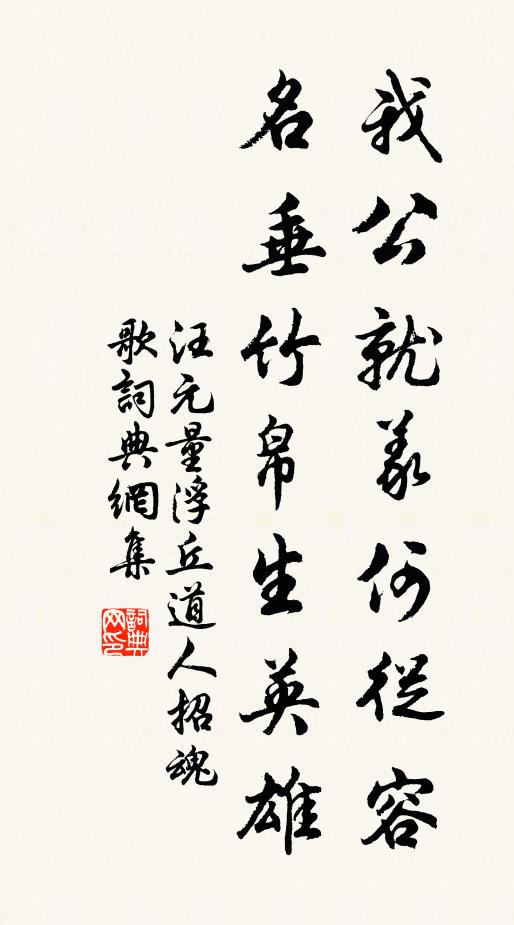 我公就義何從容
名垂竹帛生英雄
汪元量浮丘道人招魂
歌詞典網集
詞典网印